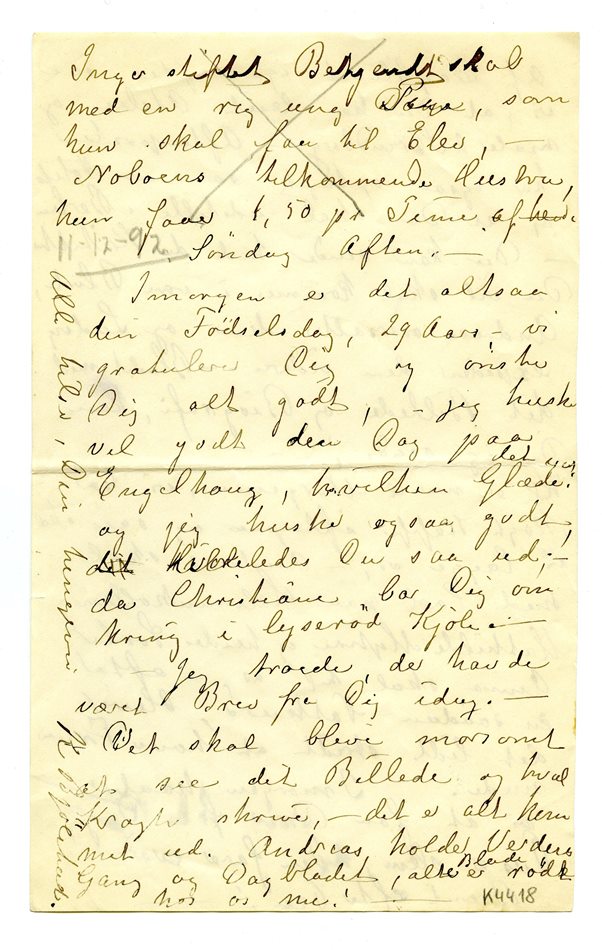 Inger stiftet Bekjendtskab
med en rig ung Pige, som
hun skal faa til Elev, —
Noboens tilkommende Hustru,
hun faar 1,50 pr Time.
11-12-92
Søndag Aften. —
Imorgen er det altsaa
din Fødselsdag, 29 Aar, – vi
gratulerer Dig og ønsker
Dig alt godt, – jeg husker
vel godt den Dag paa
Engelhaug, hvilken Glæde det var!
og jeg husker ogsaa godt,
hvorledes Du saa ud, –
da Christiane bar Dig om
kring i lyserød Kjole. –
– Jeg troede, der havde
været Brev fra Dig idag. —
Det skal bleve morsomt
at see det Billede og hvad
Kragh skriver, – det er alt kom
met ud. Andreas holder Verdens
Gang og Dagbladet, alle røde Blade
hos os nu! —
Alle hilser, Din hengivne
K4418